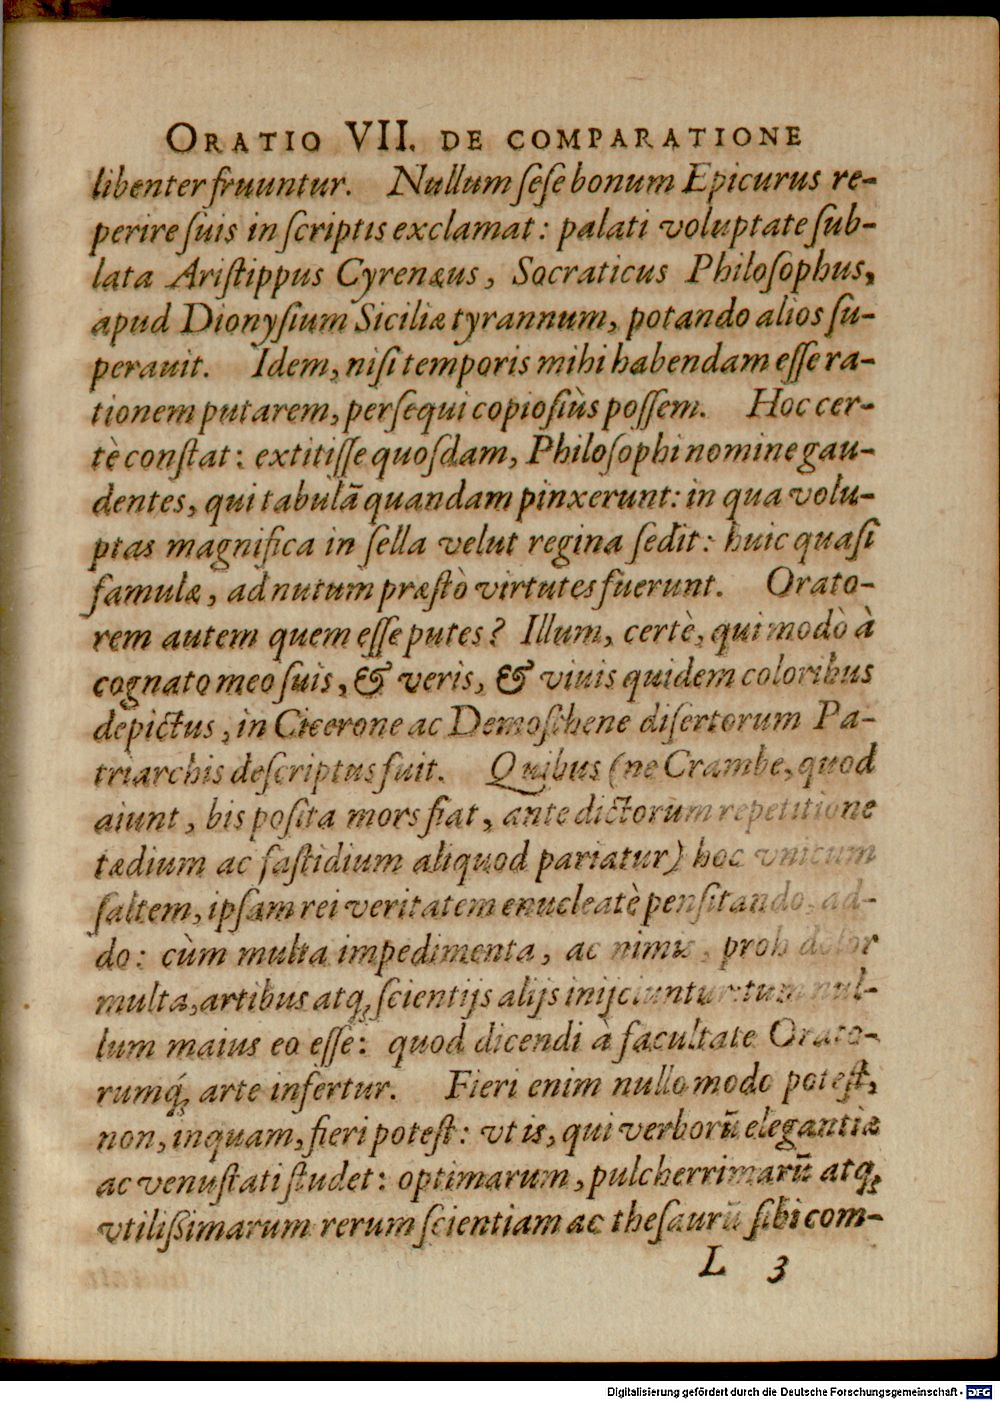 ORATIO VII. DE COMPARATIONE
libenter fruuntur. Nullum ſeſe bonum Epicurus re-
perire ſuis in ſcriptis exclamat: palati voluptate ſub-
lata Ariſtippus Cyrenæus, Socraticus Philoſophus,
apud Dionyſium Siciliæ tyrannum, potando alios ſu-
perauit. Idem, niſi temporis mihi habendam eſſe ra-
tionem putarem, perſequi copioſiùs poſſem. Hoc cer-
tè conſtat: extitiſſe quoſdam, Philoſophi nomine gau-
dentes, qui tabulā quandam pinxerunt: in qua volu-
ptas magnifica in ſella velut regina ſedit: huic quaſi
famulæ, ad nutum præſtò virtutes fuerunt. Orato-
rem autem quem eſſe putes? Illum, certè, qui modò à
cognato meo ſuis, & veris, & viuis quidem coloribus
depictus, in Cicerone ac Demoſthene diſertorum Pa-
triarchis deſcriptus fuit. Quibus (ne Crambe, quod
aiunt, bis poſita mors fiat, ante dictorum repetitione
tædium ac faſtidium aliquod pariatur) hoc vnicum
ſaltem, ipſam rei veritatem enucleatè penſitando, ad-
do: cùm multa impedimenta, ac nimis, proh dolor
multa, artibus atq; ſcientijs alijs inijciuntur: tum nul-
lum maius eo eſſe: quod dicendi à facultate Orato-
rumq́; arte infertur. Fieri enim nullo modo poteſt,
non, inquam, fieri poteſt: vt is, qui verborū elegantiæ
ac venuſtati ſtudet: optimarum, pulcherrimarū atq;
vtilißimarum rerum ſcientiam ac theſaurū ſibi com-
L 3
Digitalisierung gefördert durch die Deutsche Forschungsgemeinschaft - DFG